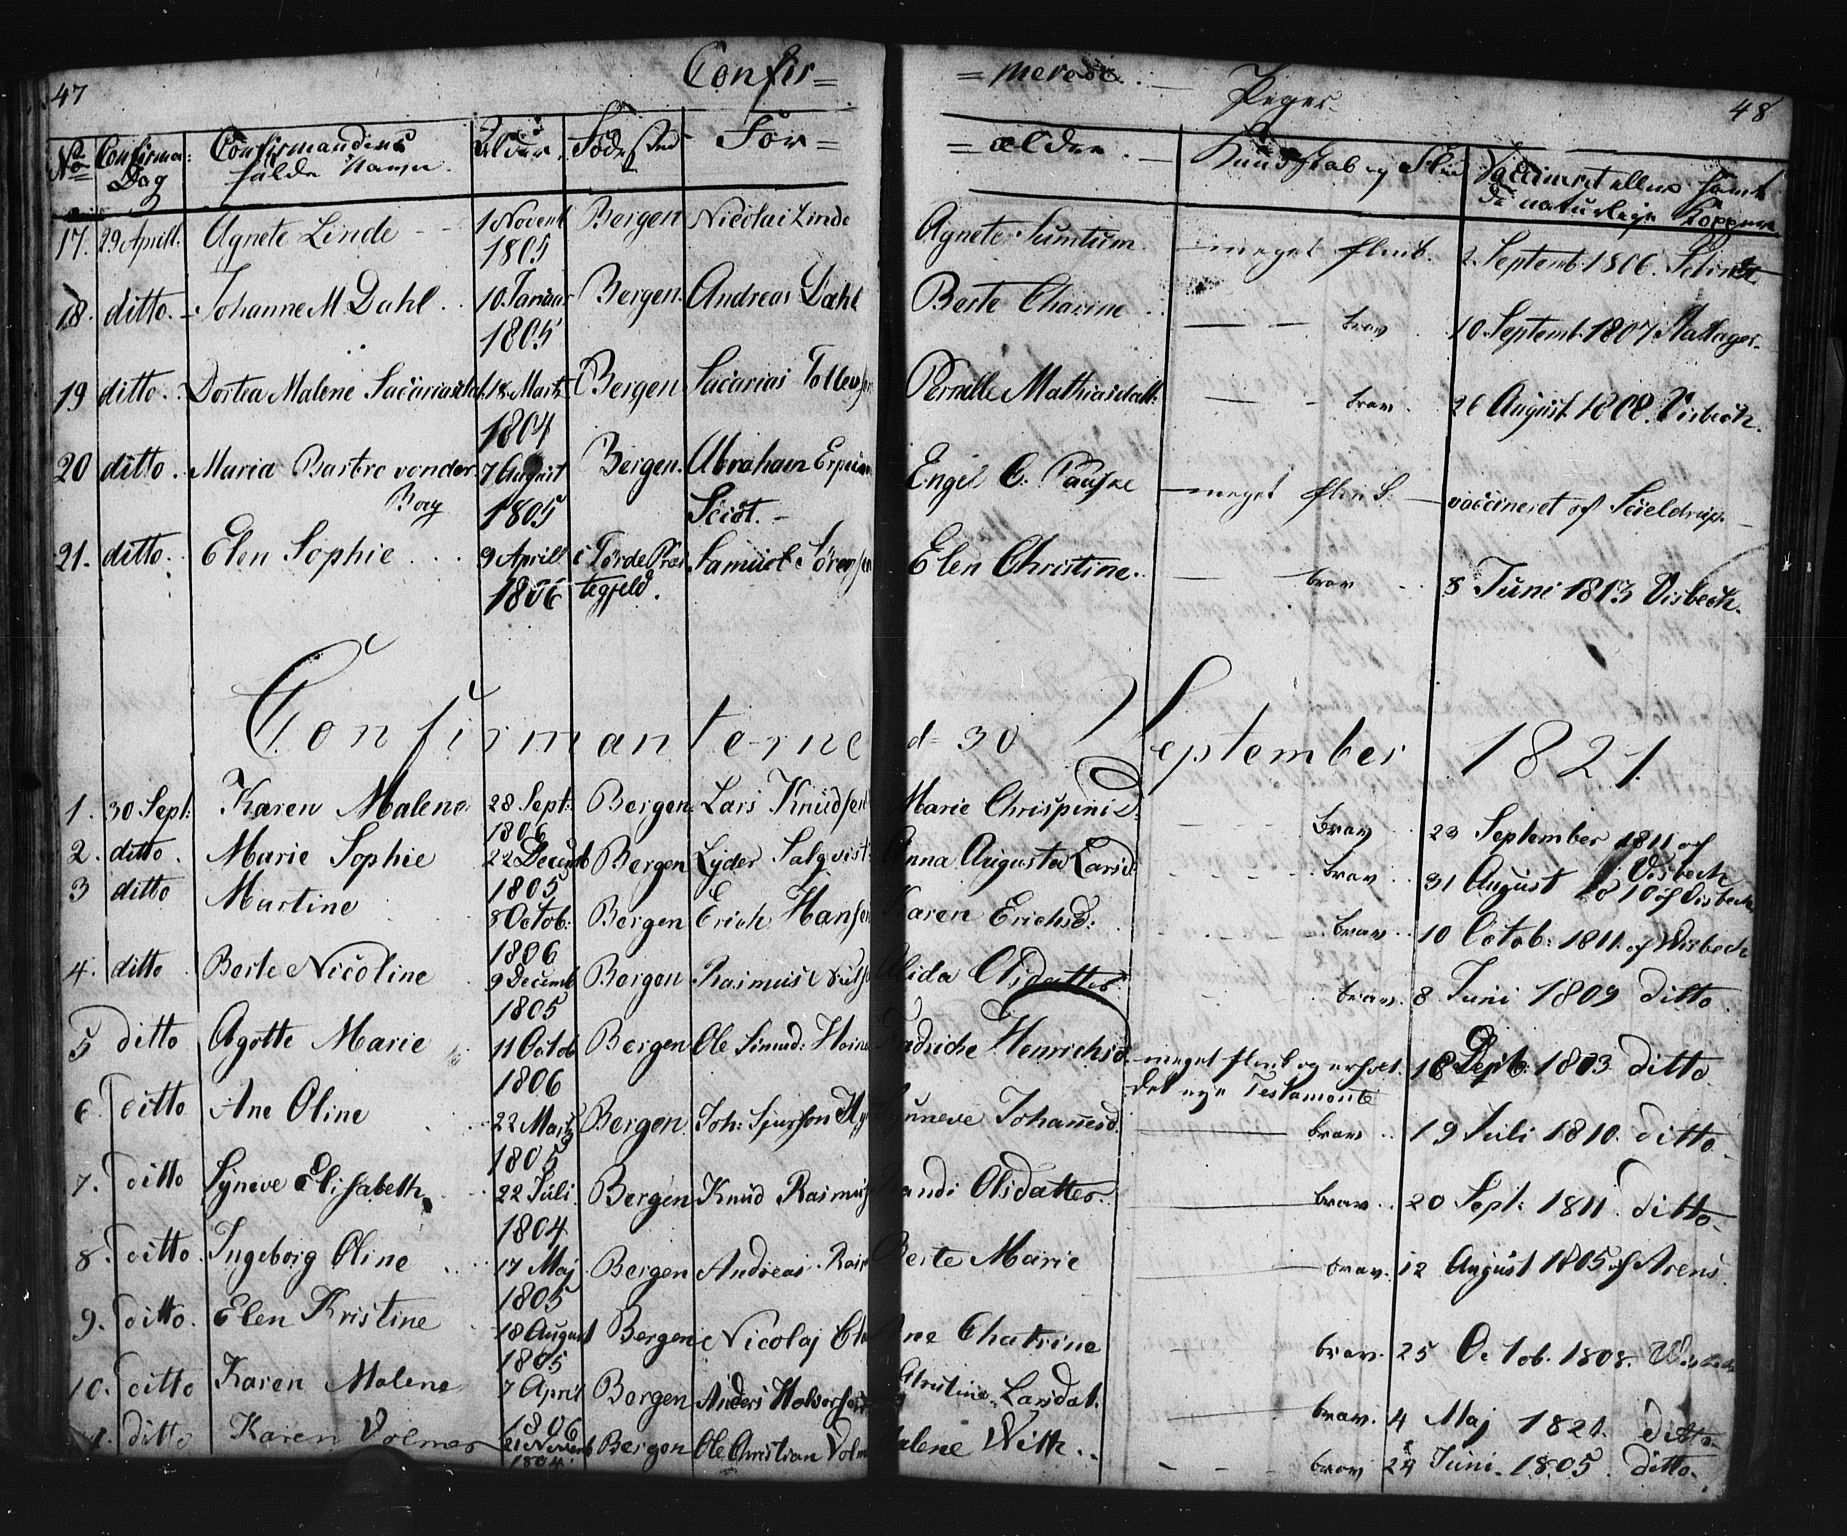 47 Confir= =merede Piger 48
No Confirma: Dag Confirmandens fulde Navn Alder Fødested For= =ældre Kundskab og Flid Vaccineret eller havt de naturlige Kopper
17. 29 Aprill: Agnete Linde 1 Novemb 1805 Bergen Nicolai Linde Agnete Sumtum meget flink. 2 Septemb: 1806.
18. ditto. Johanne M Dahl 10. Januar 1805 Bergen. Andreas Dahl Berte Charine brav 10 Septemb. 1807
19 ditto. Dortea Malene Sacariasdat. 18 Marti 1804 Bergen Sacarias Tollevsen Pernille Mathiasdatt. brav 26 August 1808. Visbech.
20 ditto. Maria Barbre vonder Borg 7 August 1805 Bergen. Abraham Sciöt. Engel C. meget flink. vaccineret af Scieldrup.
21. ditto. Elen Sophie 9 Aprill 1806 i Förde Præstegjeld. Samuel Sörensen Elen Christine. brav 8 Juni 1813 Visbech.
Confirmanterne d= 30 September 1821.
1. 30 Sept: Karen Malene 28 Sept: 1806 Bergen Lars Knudsen Marie Chrispinis: brav 23 September 1811 af Visbech
2. ditto. Marie Sophie 22 Decemb 1805 Bergen Lyder Salqvist Anna Augusta Larsd: brav 31 August 1810 af Visbech
3 ditto Martine 8 Octob: 1806 Bergen Erich Hansen Karen Erichsd: brav 10 Octob: 1811. af Wisbech
4. ditto Berte Nicoline 9 Decemb 1805 Bergen Rasmus Alida Olsdatter brav. 8 Juni 1809 ditto
5 ditto Agotte Marie 11 Octob 1806 Bergen Ole Simud: Henrichsd. meget flink og det nye Testamente 18 1803 ditto
6. ditto Ane Oline 22 Marti 1805 Bergen Joh: Sjursson Johannesd. brav 19 Juli 1810. ditto
7. ditto Syneve Elisabeth 22 Juli 1804 Bergen Knud Rasmus Olsdatter brav 20 Sept: 1811. ditto
8. ditto Ingeborg Oline 17 Maj 1805 Bergen Andreas Berte Marie brav. 12 August 1805 af Arens.
9. ditto. Elen Kristine 18 August 1805 Bergen Nicolaj Ane Chatrine brav. 25 Octob. 1808.
10. ditto Karen Malene 7 April 1806 Bergen Anders Halvorsen Christine Larsdat. brav. 4 Maj 1821. ditto
ditto Karen Volmer 21 Novemb 1804. Bergen Ole Christian Volm Malene With brav 24 Juni 1805 ditto.